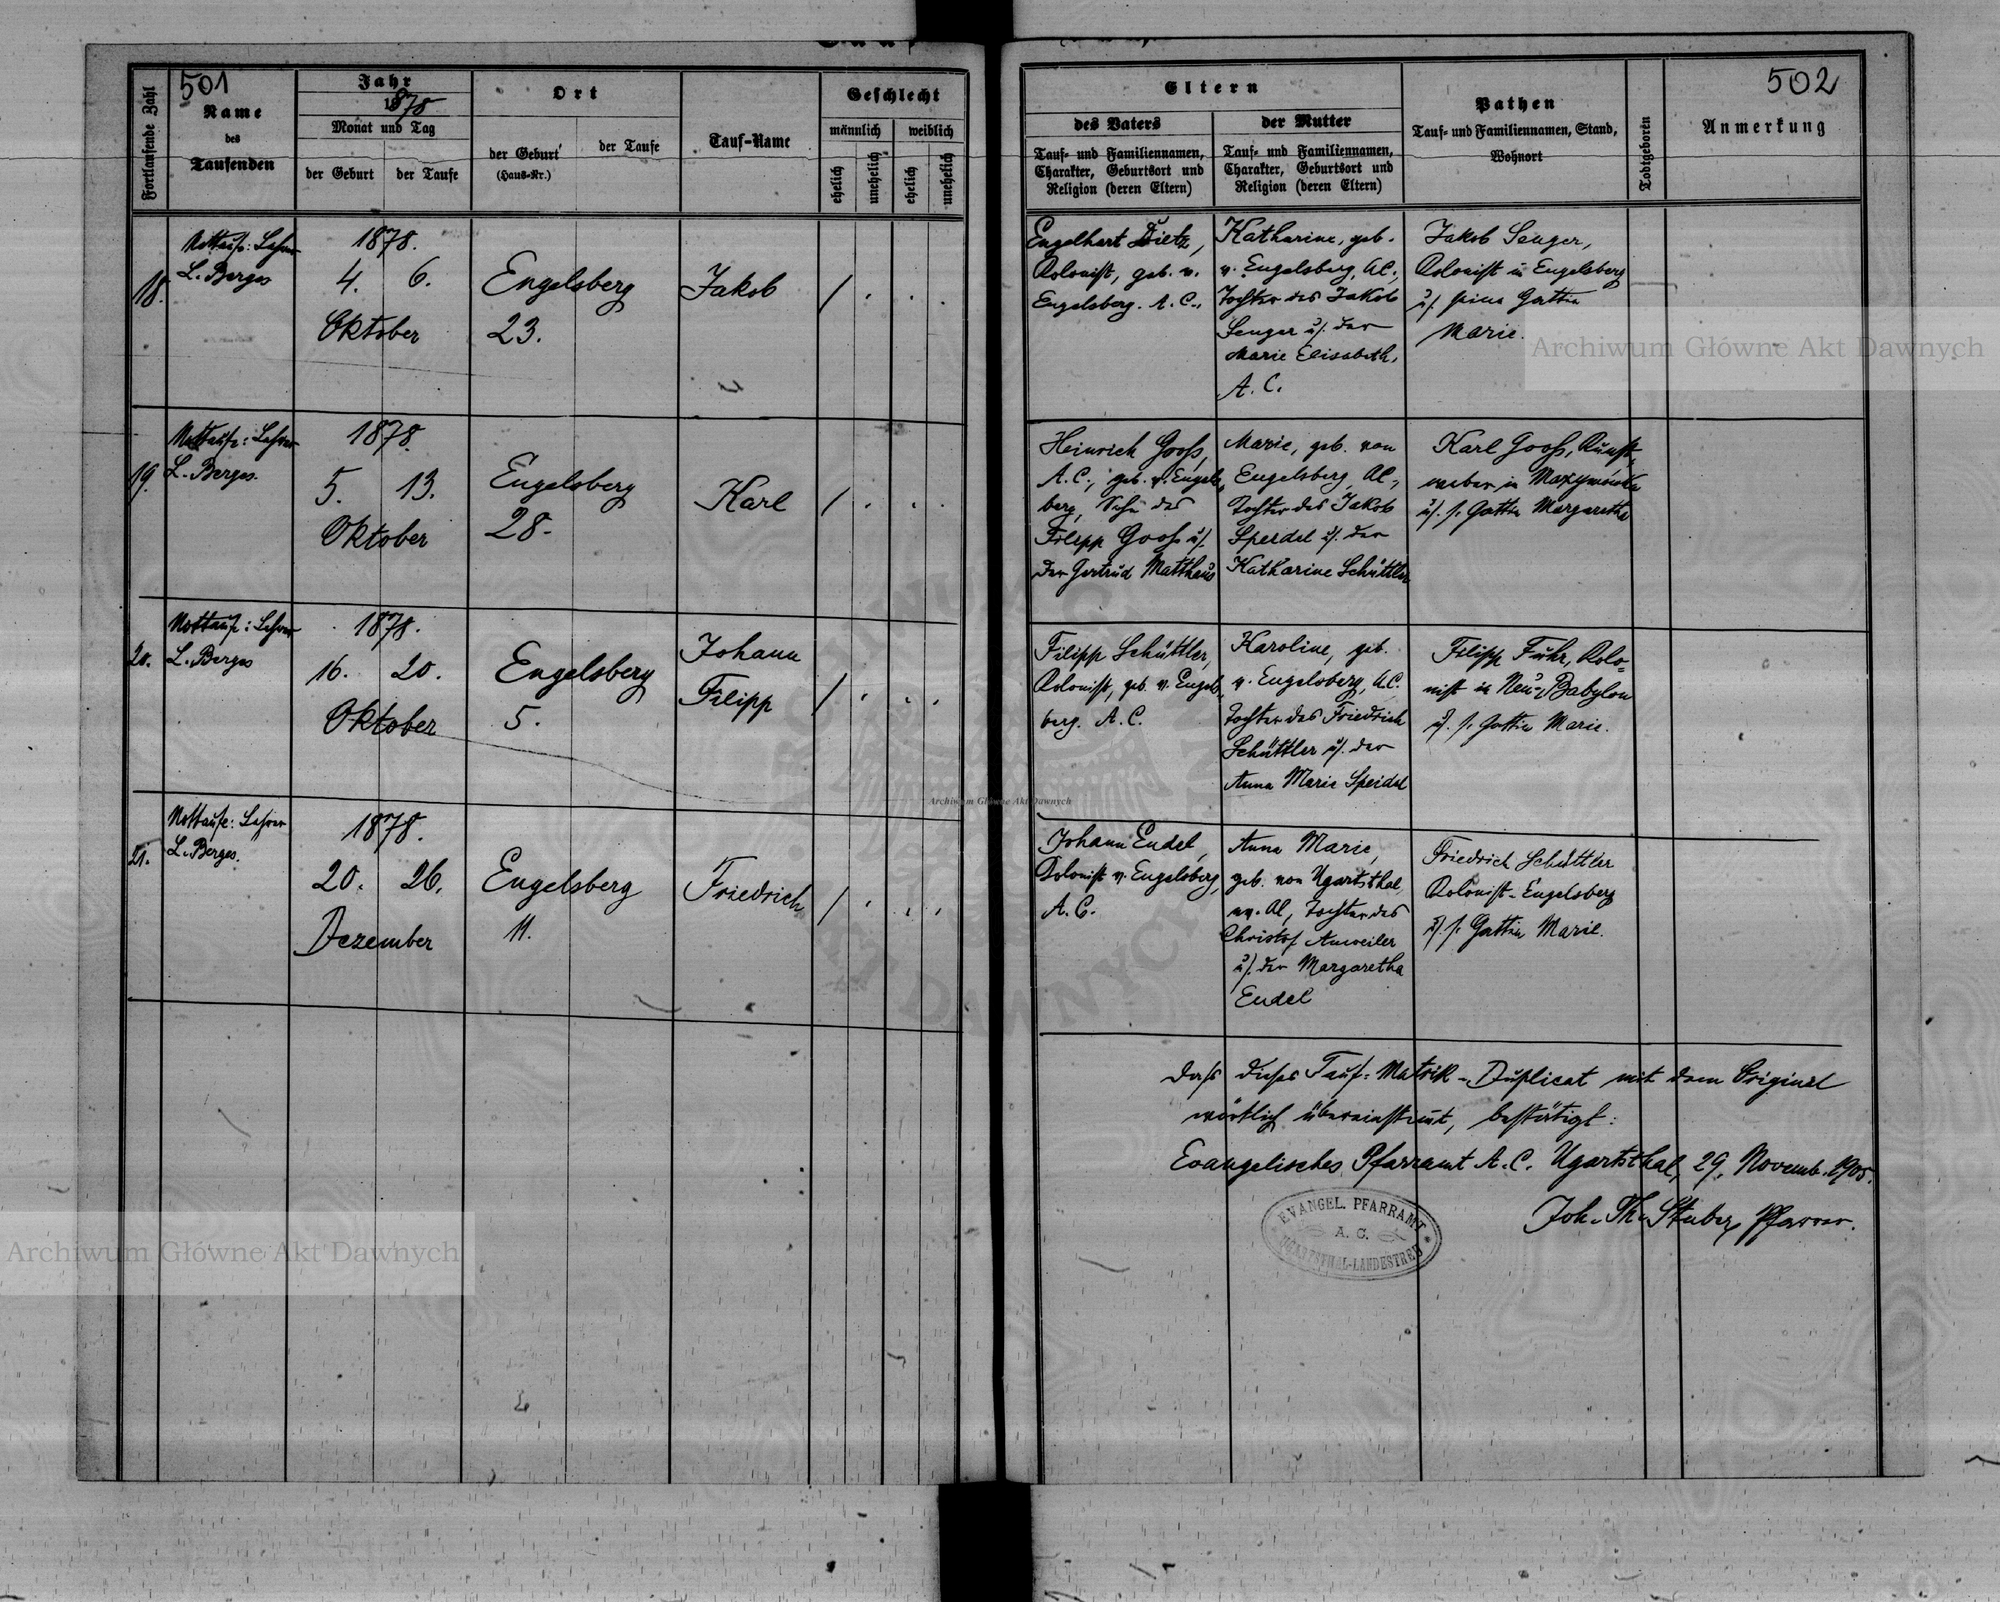 501
Fortlaufende Zahl
Name
des
Taufenden
Jahr
1878
Monat und Tag
der Geburt
der Taufe
Ort
der Geburt
(Haus-Nr.)
der Taufe
Tauf-Name
Geschlecht
männlich
weiblich
ehelich
unehelich
ehelich
unehelich
Eltern
des Vaters
Tauf- und Familiennamen,
Charakter, Geburtsort und
Religion (deren Eltern)
der Mutter
Tauf- und Familiennamen,
Charakter, Geburtsort und
Religion (deren Eltern)
Pathen
Tauf- und Familiennamen, Stand,
Wohnort
Todtgeboren
502
Anmerkung
18.
Nottaufe: Lehrer
L. Berges
1878.
4. 6.
Oktober
Engelsberg
23.
Jakob
/ . . .
Engelhart Dietz,
Kolonist, geb. v.
Engelsberg. A. C.,
Katharine, geb.
v. Engelsberg, AC.,
Tochter des Jakob
Senger u. der
Marie Elisabeth,
A. C.
Jakob Senger,
Kolonist in Engelsberg
u. seine Gattin
Marie.
19.
Nottaufe: Lehrer
L. Berges.
1878.
5. 13.
Oktober
Engelsberg
28.
Karl
/ . . .
Heinrich Gooß,
A. C., geb. v. Engels-
berg, Sohn des
Filipp Gooß u.
der Gertrud Matthäus
Marie, geb. von
Engelsberg, AC.,
Tochter des Jakob
Speidel u. der
Katharine Schüttler
Karl Gooß, Kunst-
weber in Maxymówka
u. s. Gattin Margaretha
20.
Nottaufe: Lehrer
L. Berges
1878.
16. 20.
Oktober
Engelsberg
5.
Johann
Filipp
/ . . .
Filipp Schüttler,
Kolonist, geb. v. Engels-
berg. A. C.
Karoline, geb.
v. Engelsberg, A.C.
Tochter des Friedrich
Schüttler u. der
Anna Marie Speidel
Filipp Fuhr, Kolo-
nist in Neu-Babylon
u. s. Gattin Marie.
21.
Nottaufe: Lehrer
L. Berges.
1878.
20. 26.
Dezember
Engelsberg
11.
Friedrich
/ . . .
Johann Endel,
Kolonist v. Engelsberg,
A. C.
Anna Marie,
geb. von Ugartsthal,
ev. AC, Tochter des
Christof Anweiler
u. der Margaretha
Endel
Friedrich Schüttler
Kolonist-Engelsberg
u. s. Gattin Marie.
Daß dieses Tauf-Matrik-Duplicat mit dem Original
wörtlich übereinstimt, bestätigt:
Evangelisches Pfarramt A. C. Ugartsthal, 29. Novemb. 1905.
Joh. Th. Stuber, Pfarrer.
EVANGEL. PFARRAMT
A. C.
UGARTSTHAL-LANDESTREU
Archiwum Główne Akt Dawnych
Archiwum Główne Akt Dawnych
Archiwum Główne Akt Dawnych